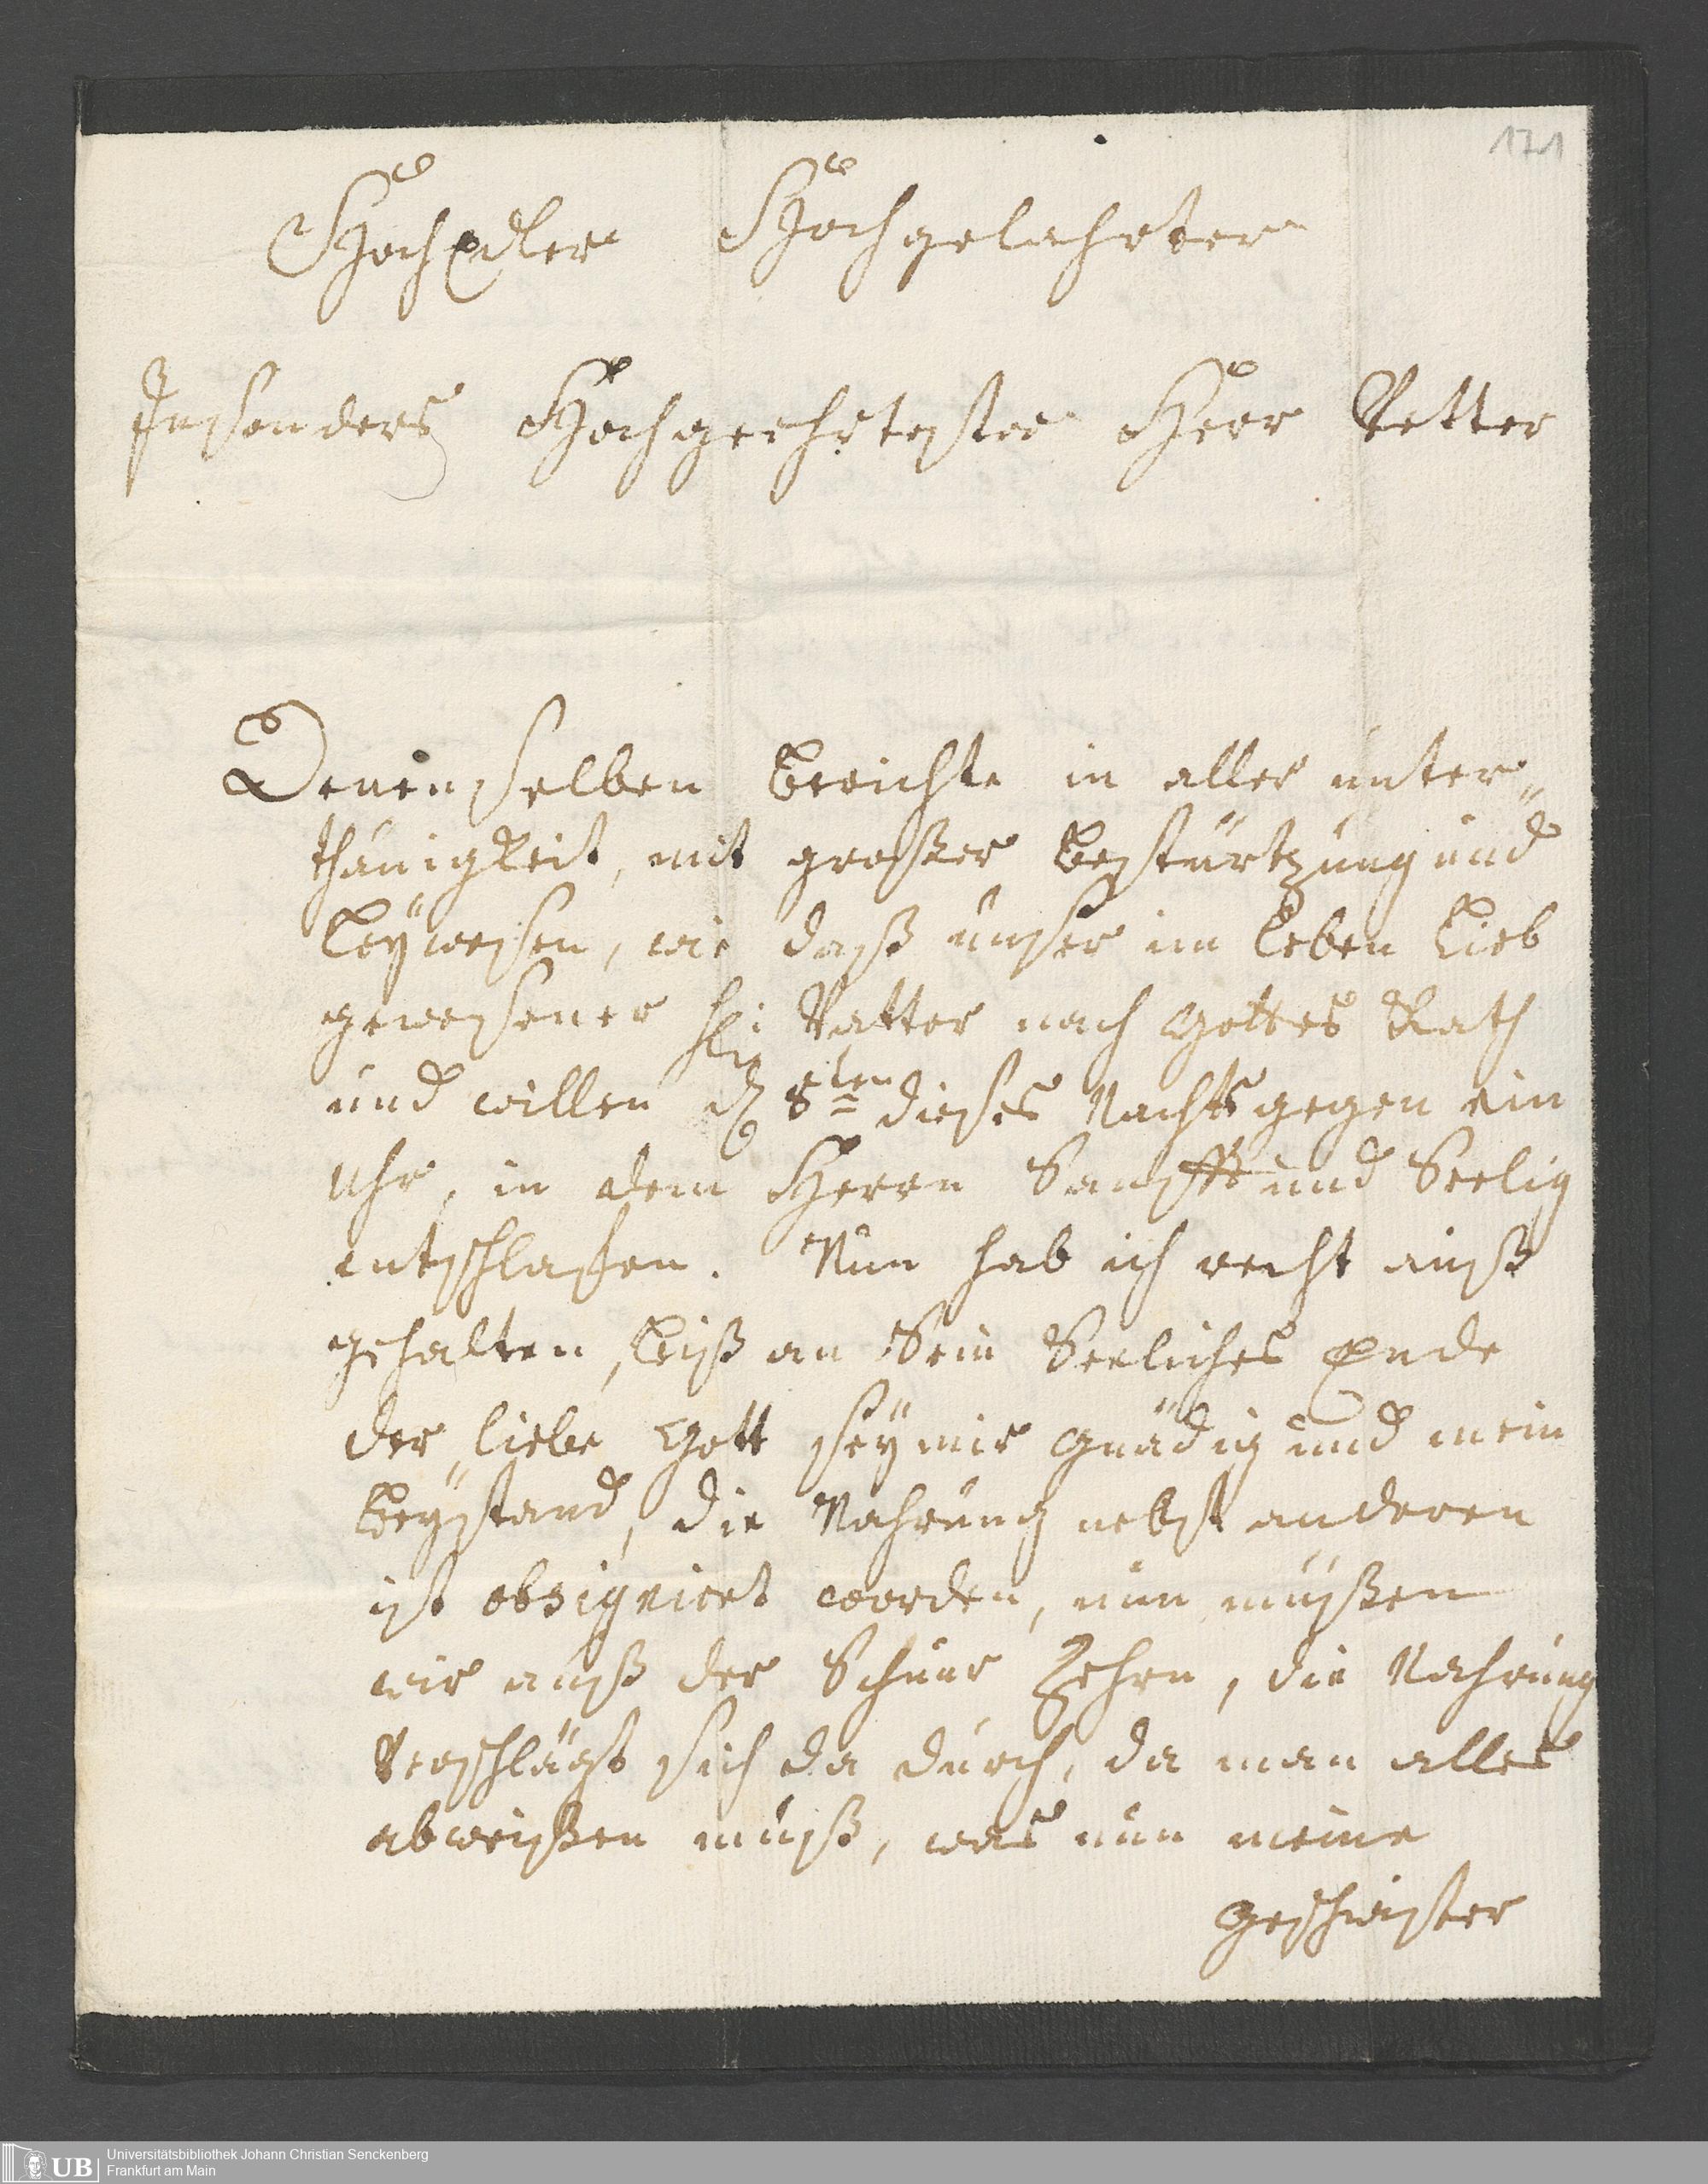 171
HochEdler Hochgelahrter
Insonders Hochgeehrtester Herr Vetter
Denenselben berichte in aller unter„
thänigkeit, mit großer bestürtzung und
Leÿwesen, wie daß unser im Leben Lieb
gewesener H: Vatter nach Gottes Rath
und willen d 8ten dieses Nachts gegen ein
Uhr, in dem Herrn Sanfft und Seelig
entschlafen. Nun hab ich recht auß
gehalten, biß an Sein Seeliches Ende
der liebe Gott seÿ mir gnädig und mein
beÿstand, die Nahrung nebst anderen
ist obsigniret worden, nun müßen
wir auß der Schnur Zehren, die Nahrung
Verschlägt sich da durch, da man alles
abweißen muß, was nun meine
geschwister
UB Universitätsbibliothek Johann Christian Senckenberg
Frankfurt am Main